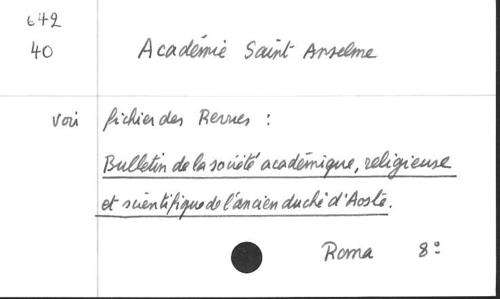 642
40 Académie Saint Anselme
voir fichier des Revues :
Bulletin de la société académique, religieuse
et scientifique de l'ancien duché d'Aoste.
Roma 8°